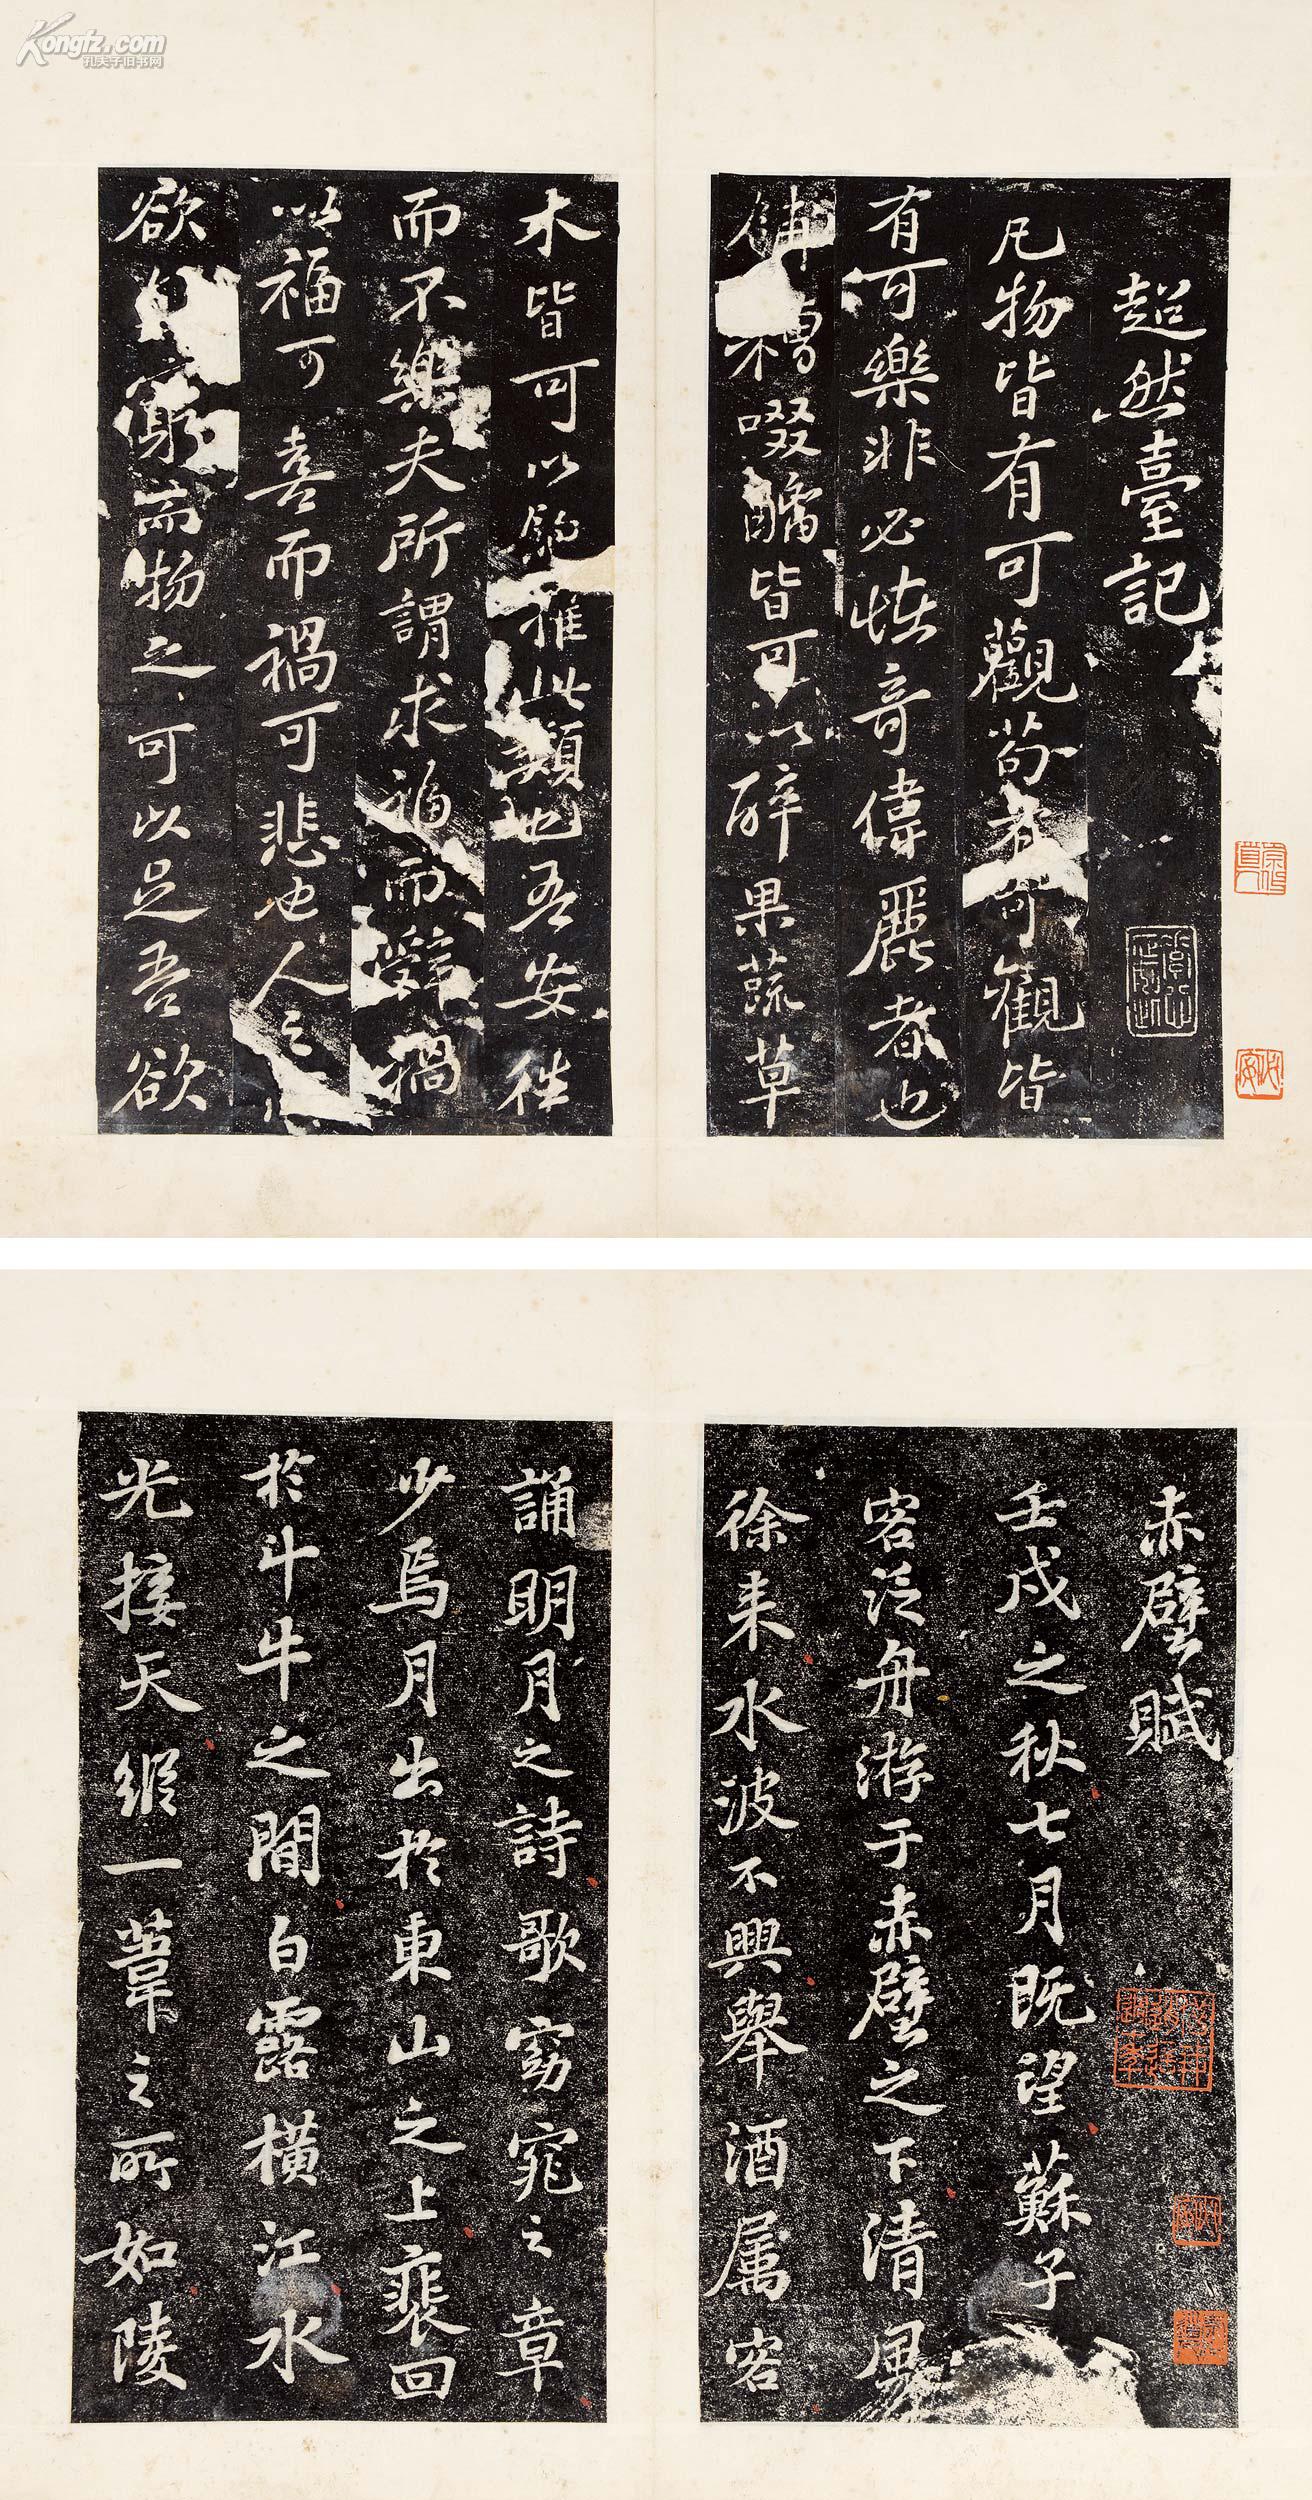 Kongfz.com
孔夫子旧书网
超然臺記
凡物皆有可觀苟有可觀皆
有可樂非必恠奇偉麗者也
餔糟啜醨皆可以醉果蔬草
木皆可以飽推此類也吾安往
而不樂夫所謂求福而辭禍
以福可喜而禍可悲也人之所
欲無窮而物之可以足吾欲
赤壁賦
壬戌之秋七月既望蘇子
客泛舟游于赤壁之下清風
徐來水波不興舉酒属客
誦明月之詩歌窈窕之章
少焉月出於東山之上裴回
於斗牛之間白露橫江水
光接天縱一葦之所如陵